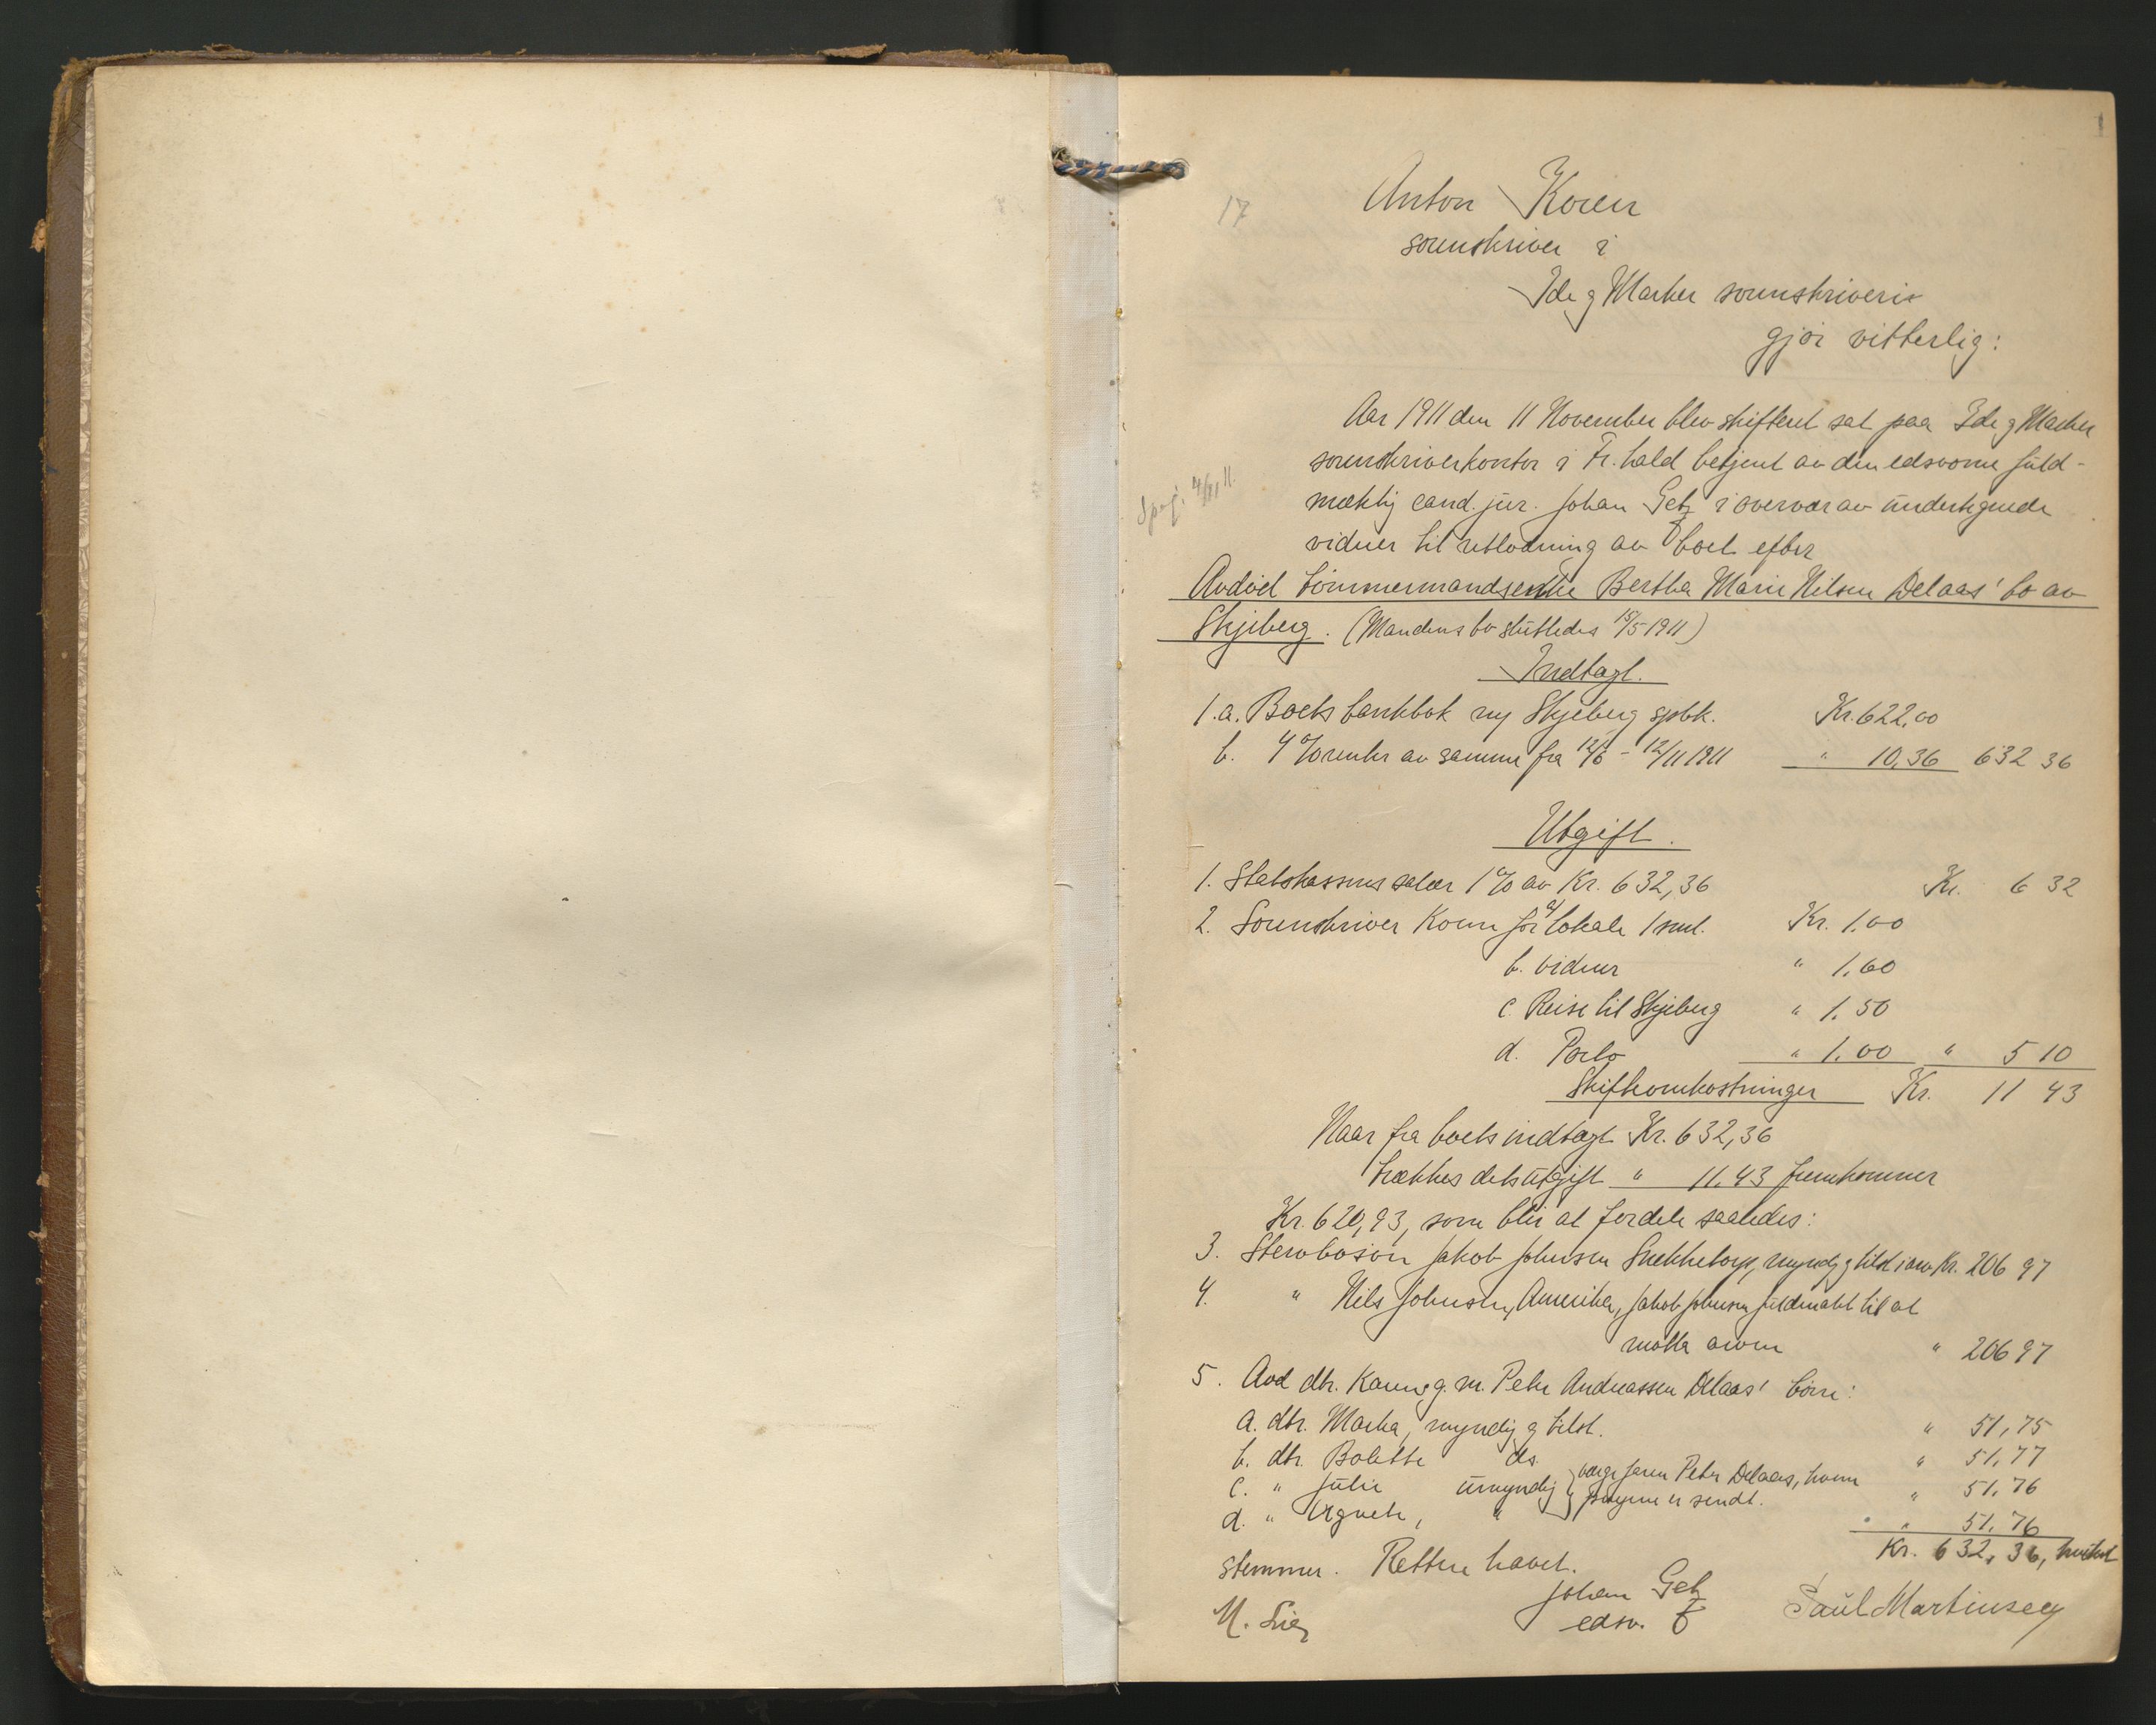 1
17
Anton Koren
sorenskriver i
Ide og Marker sorenskriveri
gjør vitterlig:
Aar 1911 den 11 November blev skifteret sat paa Ide og Marker
sorenskriverkontor i Fr.hald betjent av den edsvorne fuld-
mæktig cand. jur. Johan Getz i overvær av undertegnede
vidner til utlodning av boet efter
Avdød tømmermandsenke Bertha Marie Nilsen Delaas' bo av
Skjeberg. (Mandens bo sluttedes 15/5 1911)
Indtægt.
1.a. Boets bankbok ny Skjeberg spbk. Kr. 622,00
b. 4 % renter av samme fra 12/6 - 12/11 1911 " 10,36 632 36
Utgift.
1. Statskassens salær 1 % av Kr. 632,36 Kr. 6 32
2. Sorenskriver Koren for a/ lokale 1 saml. Kr. 1.00
b. vidner " 1.60
c. Reise til Skjeberg " 1.50
d. Porto " 1.00 " 5 10
Skifteomkostninger Kr. 11 43
Naar fra boets indtægt Kr. 632,36
trækkes dets utgift " 11.43 fremkommer
Kr. 620,93, som blir at fordele saaledes:
3. Stervbosøn Jakob Johnsen Snekketorp, myndig og tilst. i arv Kr. 206 97
4. " Nils Johnsen, Amerika, Jakob Johnsen fuldmakt til at
motta arven " 206 97
5. Avd dtr. Karen g. m. Peter Andreassen Delaas' børn:
a. dtr. Marta, myndig og tilst. " 51,75
b. dtr. Bolette ds. " 51,77
c. " Julie umyndig } værge faren Peter Delaas, hvem " 51.76
d. " Agnete, " } pengene er sendt. " 51.76
Kr. 632,36, hvilket
stemmer. Retten hævet.
Johan Getz
edsv. f
N. Lie
Paul Martinsen